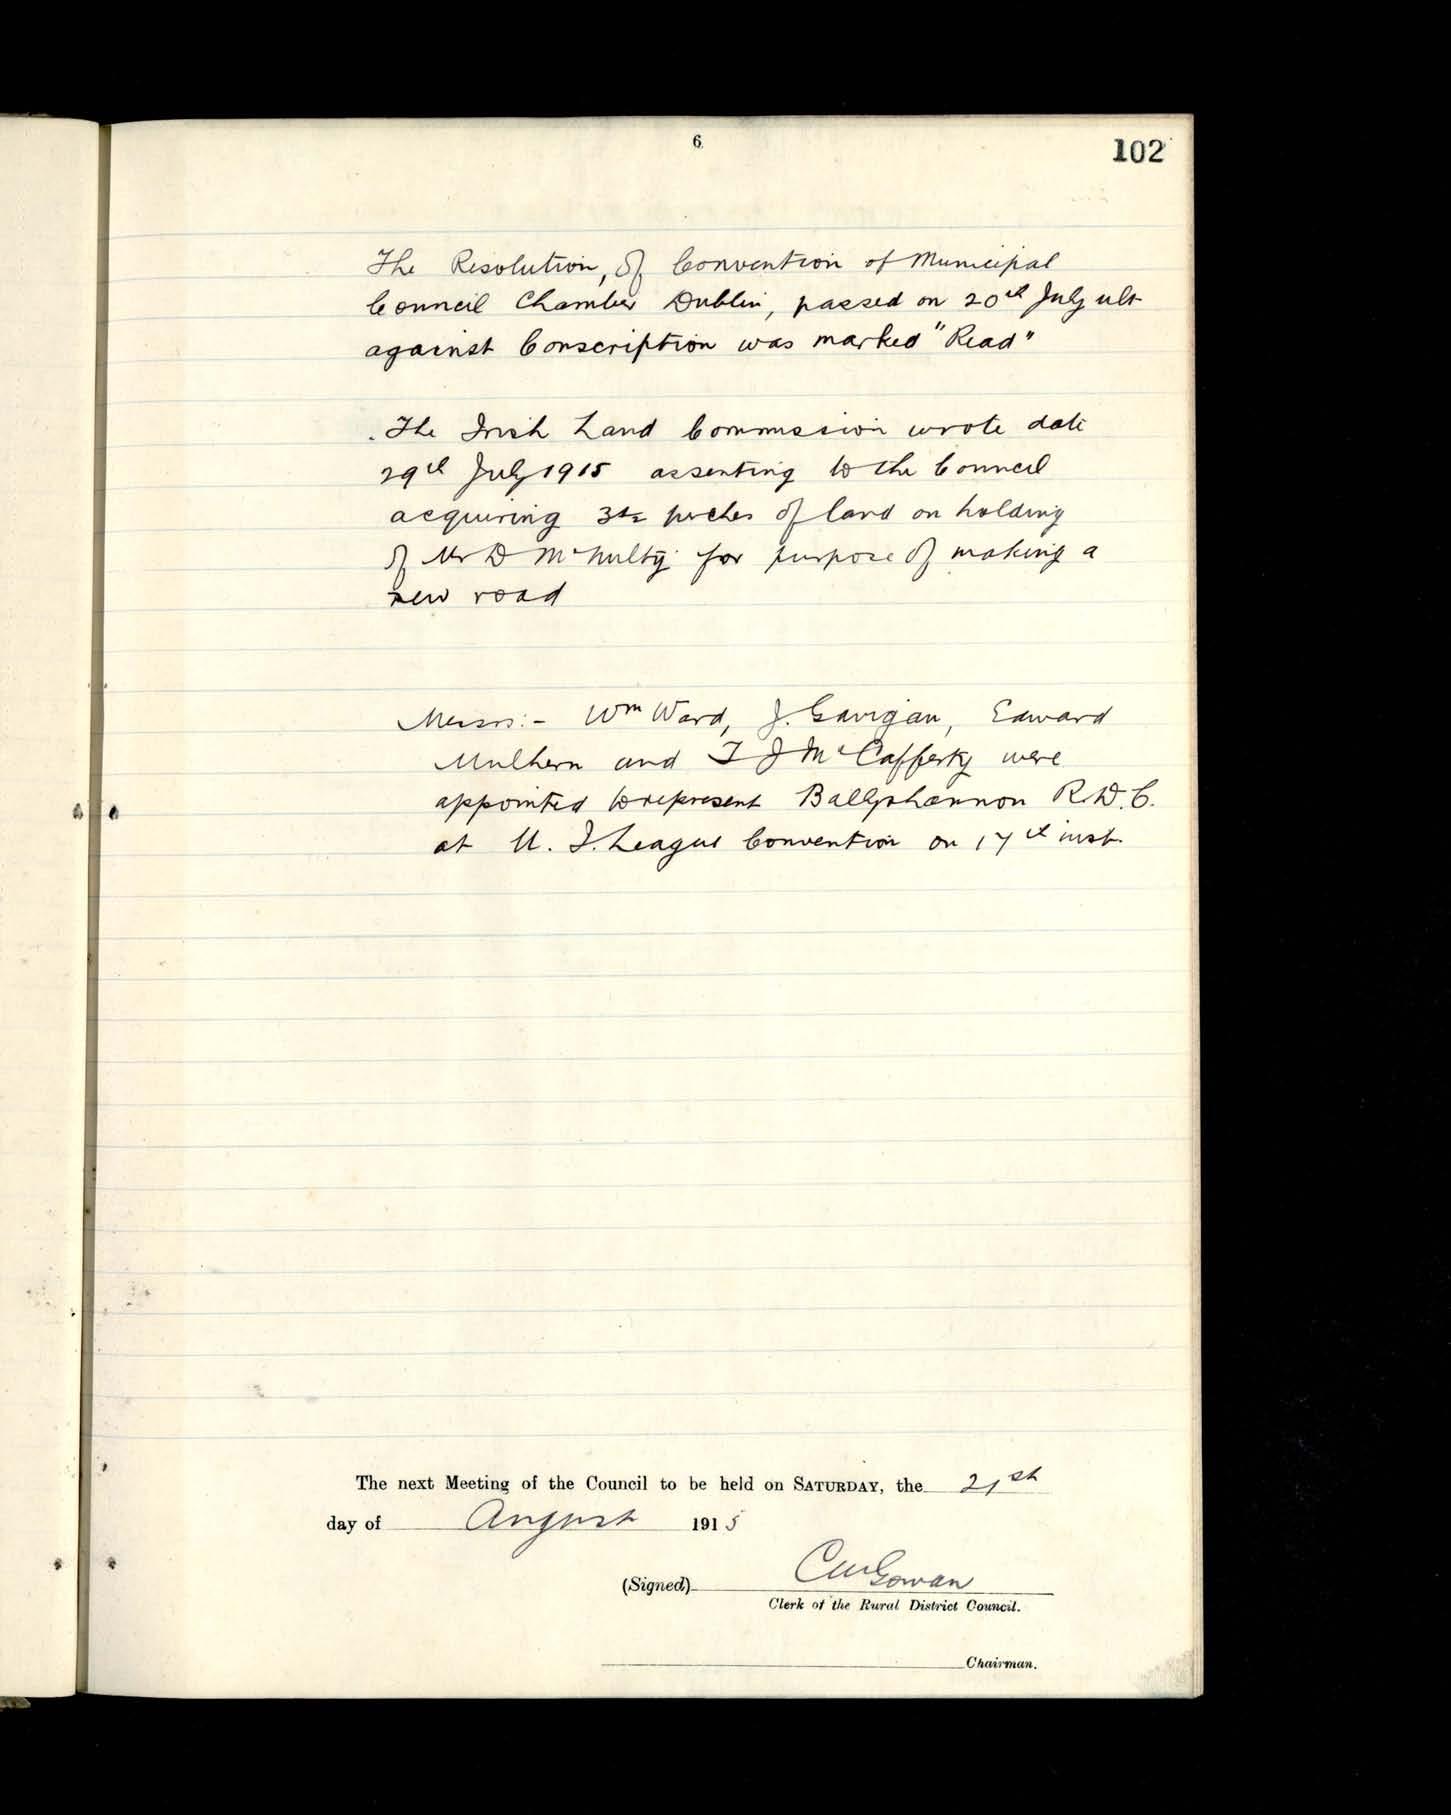 6
102
The Resolution, of Convention of Municipal
Council Chamber Dublin, passed on 20th July ult
against Conscription was marked "Read"
The Irish Land Commission wrote date
29th July 1915 assenting to the Council
acquiring perches of land on holding
of Mr D McNulty for purpose of making a
new road
Messrs:- Wm Ward, J. Gavigan, Edward
Mulhern and T J McCafferty were
appointed to represent Ballyshannon R.D.C.
at U. I. League Convention on 17th inst.
The next Meeting of the Council to be held on SATURDAY, the 21st
day of August 1915
(Signed) Gowan
Clerk of the Rural District Council.
Chairman.